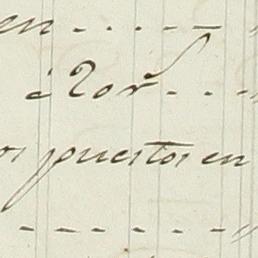 en - - - - - "
os puestos en
- - - - - - - "